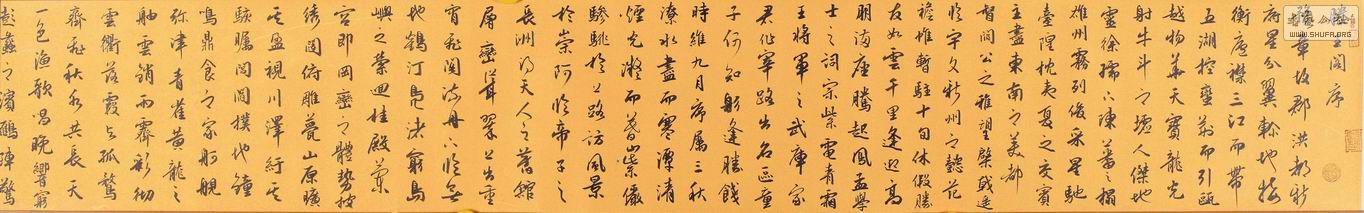 滕王閣序
豫章故郡洪都新
府星分翼軫地接
衡廬襟三江而帶
五湖控蠻荊而引甌
越物華天寶龍光
射牛斗之墟人傑地
靈徐孺下陳蕃之榻
雄州霧列俊采星馳
臺隍枕夷夏之交賓
主盡東南之美都
督閻公之雅望棨戟遙
臨宇文新州之懿範
襜帷暫駐十旬休假勝
友如雲千里逢迎高
朋滿座騰起鳳孟學
士之詞宗紫電青霜
王將軍之武庫家
君作宰路出名區童
子何知躬逢勝餞
時維九月序屬三秋
潦水盡而寒潭清
煙光凝而暮山紫儼
驂騑於上路訪風景
於崇阿臨帝子之
長洲得天人之舊館
層巒聳翠上出重
霄飛閣流丹下臨無
地鶴汀鳧渚窮島
嶼之縈迴桂殿蘭
宮即岡巒之體勢披
繡闥俯雕甍山原曠
其盈視川澤紆其
駭矚閭閻撲地鐘
鳴鼎食之家舸艦
彌津青雀黃龍之
舳雲銷雨霽彩徹
雲衢落霞與孤鶩
齊飛秋水共長天
一色漁歌唱晚響窮
彭蠡之濱雁陣驚
WWW.SHUFA.ORG